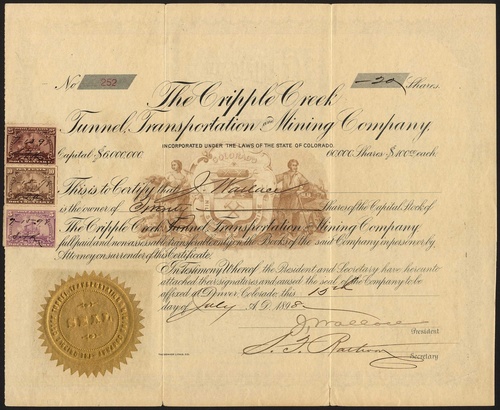 No 252 -20- Shares.
The Cripple Creek
Tunnel, Transportation and Mining Company,
INCORPORATED UNDER THE LAWS OF THE STATE OF COLORADO.
Capital $6,000,000 60,000 Shares $100.00 each.
COLORADO
This is to Certify that J. Wallace
is the owner of Twenty Shares of the Capital Stock of
The Cripple Creek Tunnel Transportation and Mining Company
full paid and nonassessable transferable only on the Books of the said Company in person or by
Attorney on surrender of this Certificate.
In Testimony Whereof the President and Secretary have hereunto
attached their signatures and caused the seal of the Company to be
affixed at Denver Colorado this 13th
day of July A.D. 1898
J. Wallace
President
Secretary
SEAL